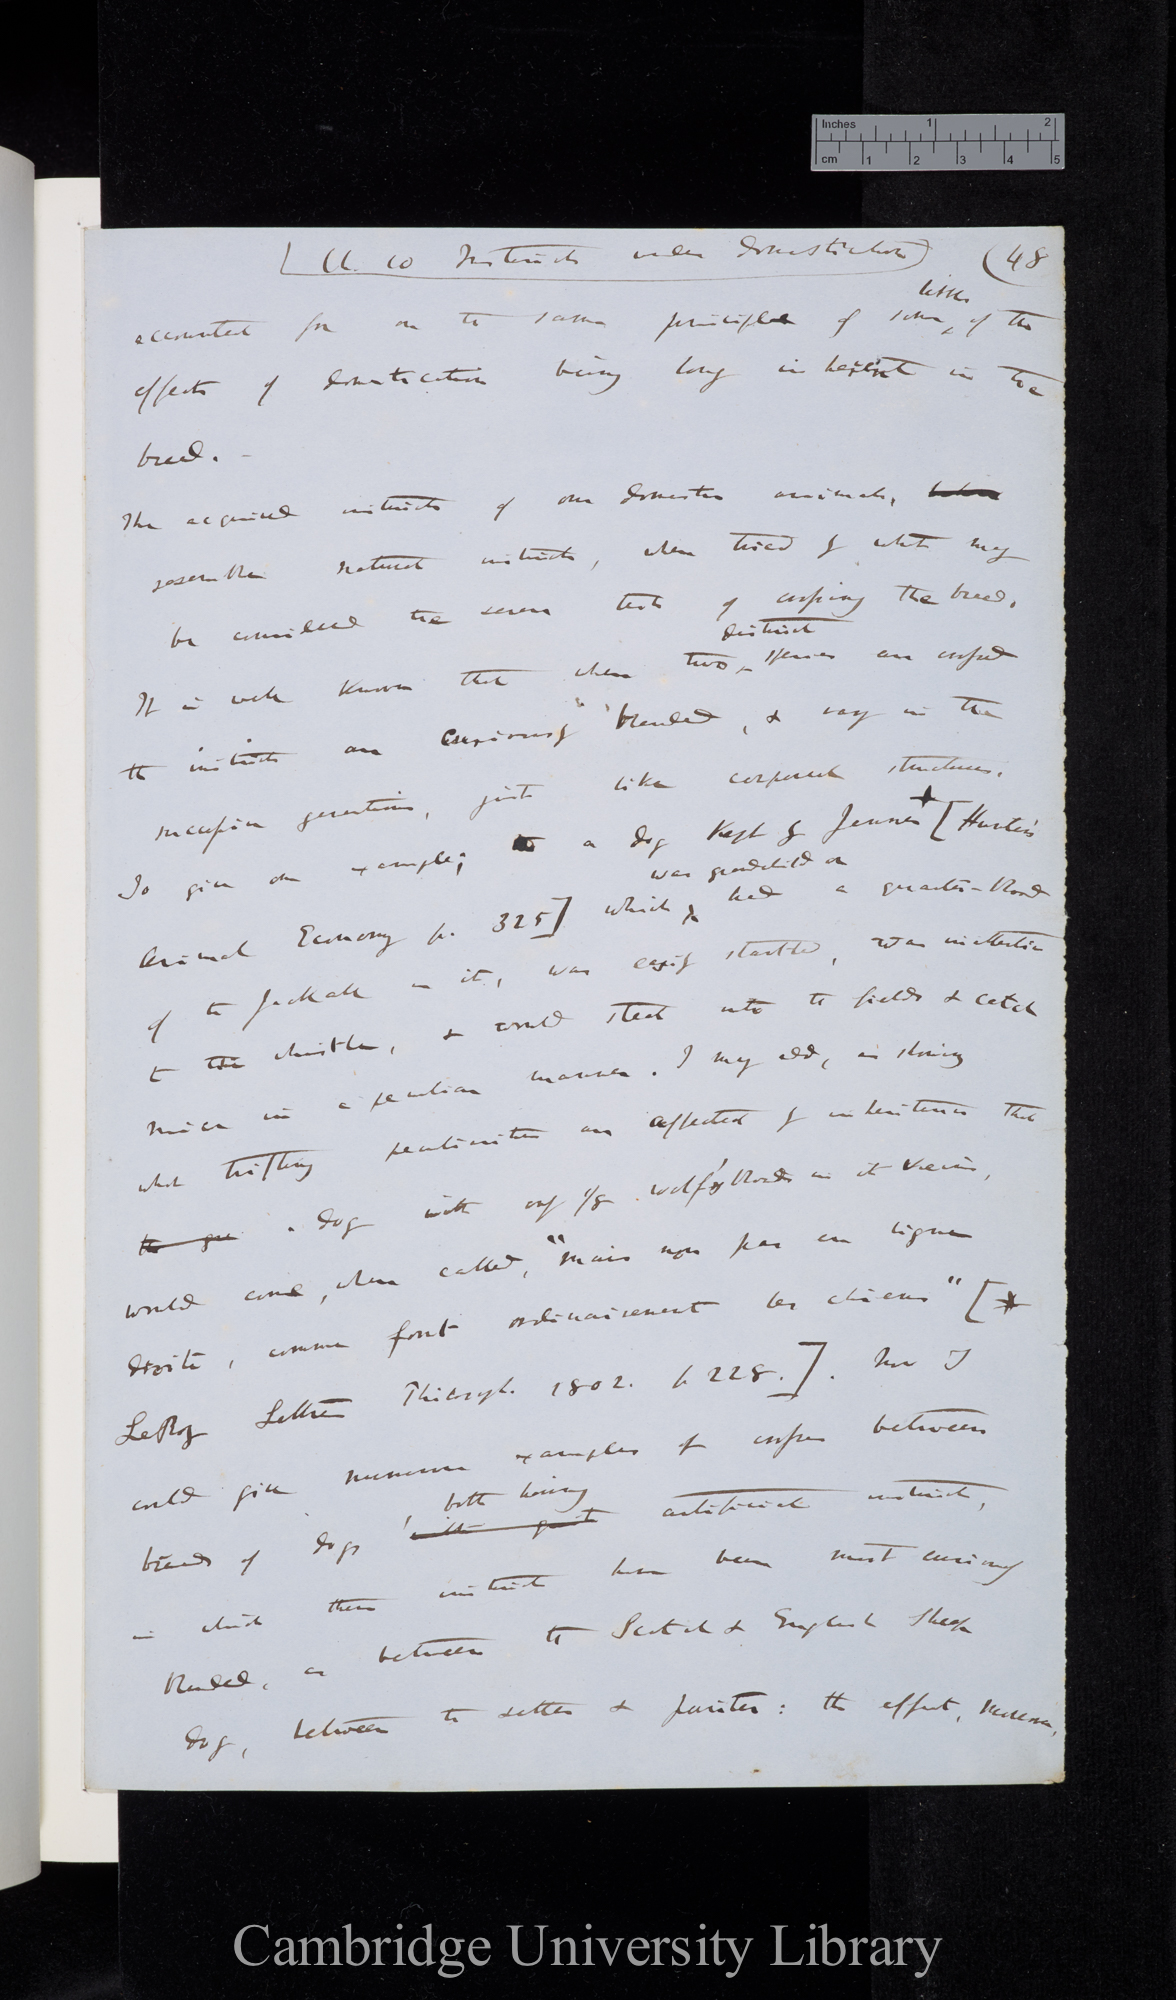 Inches 1 2
cm 1 2 3 4 5
[Ch. 10 Instincts under Domestication] (48
little
accounted for on the same principle of some of the
effects of domestication being long inherent in the
breed. —
The acquired instincts of our domestic animals,
resemble natural instincts, when tried by what may
be considered the severe test of crossing the breed.
distinct
It is well known that when two species are crossed
the instincts are curiously blended, & vary in the
successive generations, just like corporeal structures.
To give an example; a dog kept by Jenner + [Hunter's
was grandchild or
Animal Economy p. 325] which had a quarter-blood
of the Jackall in it, was easily startled, was inattentive
to the whistle, & would steal into the fields & catch
mice in a peculiar manner. I may add, as showing
what trifling peculiarities are affected by inheritance that
the a dog with only 1/8 wolf's blood in its veins,
would come, when called, "mais non pas en ligne
droite, comme font ordinairement les chiens" [+
LeRoy Lettres Philosoph. 1802. p 228.]. Now I
could give numerous examples of crosses between
both having
breeds of dogs with artificial instincts,
in which these instincts have been most curiously
blended, as between the Scotch & English sheep
dog, between the setter & pointer: the effect, moreover,
Cambridge University Library